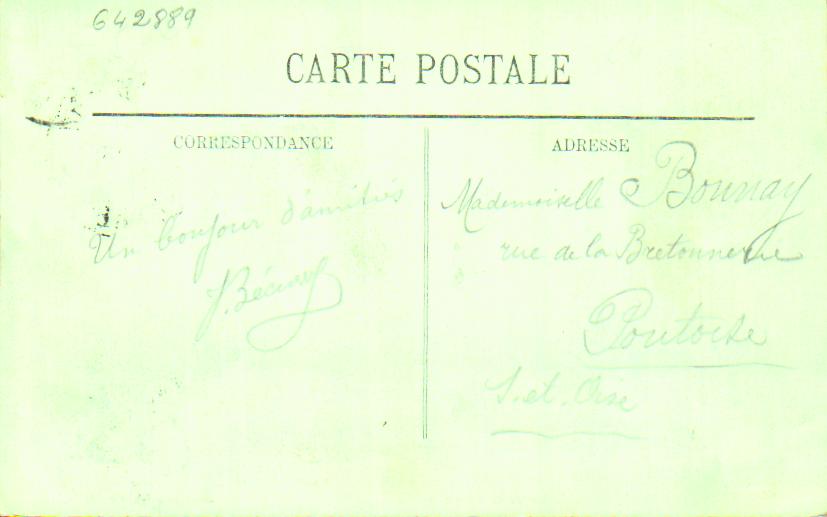 642889
CARTE POSTALE
CORRESPONDANCE
Un bonjour d'amitiés
ADRESSE
Mademoiselle Bounay
rue de la Bretonnerie
Pontoise
S. et. Oise